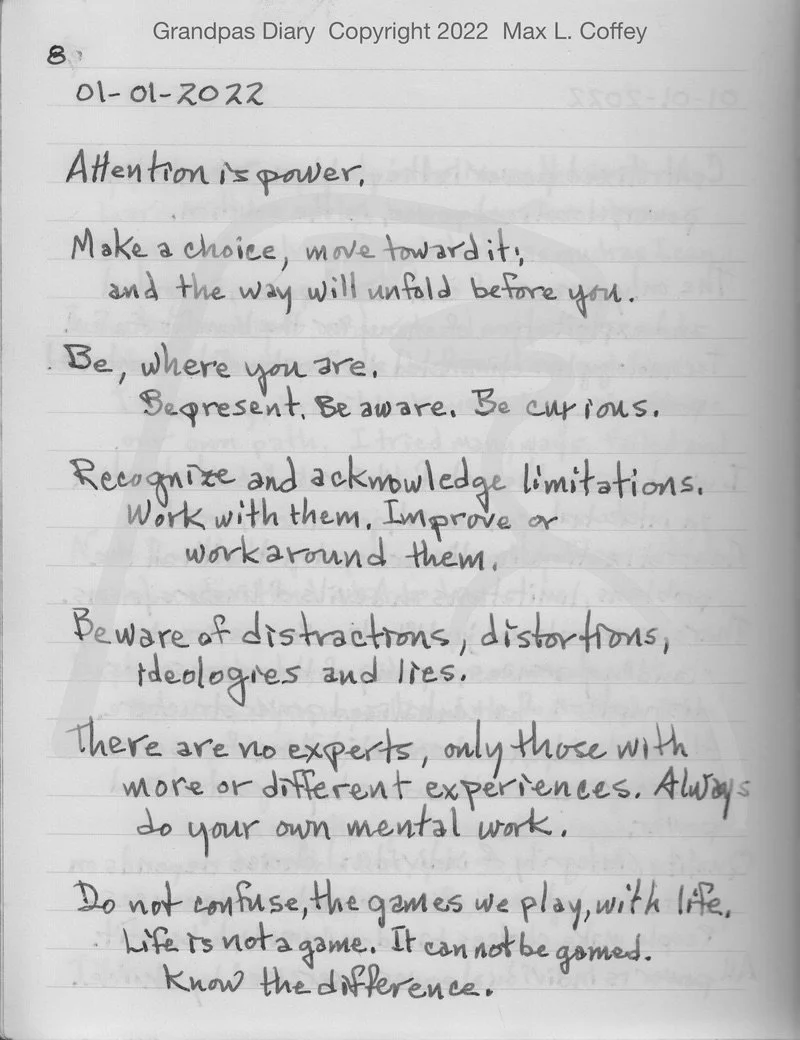 Grandpas Diary Copyright 2022 Max L. Coffey
8
01-01-2022
Attention is power.
Make a choice, move toward it;
and the way will unfold before you.
Be, where you are.
Be present. Be aware. Be curious.
Recognize and acknowledge limitations.
Work with them. Improve or
work around them.
Beware of distractions, distortions,
ideologies and lies.
There are no experts, only those with
more or different experiences. Always
do your own mental work.
Do not confuse, the games we play, with life.
Life is not a game. It can not be gamed.
Know the difference.